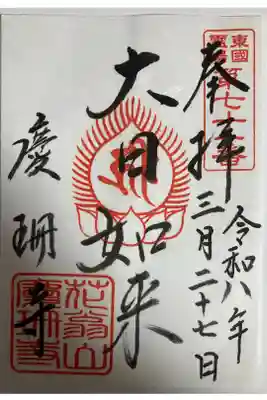 東國
霊場
奉拝
令和八年
三月二十七日
大日如来
慶珊寺
花翁山
慶珊寺